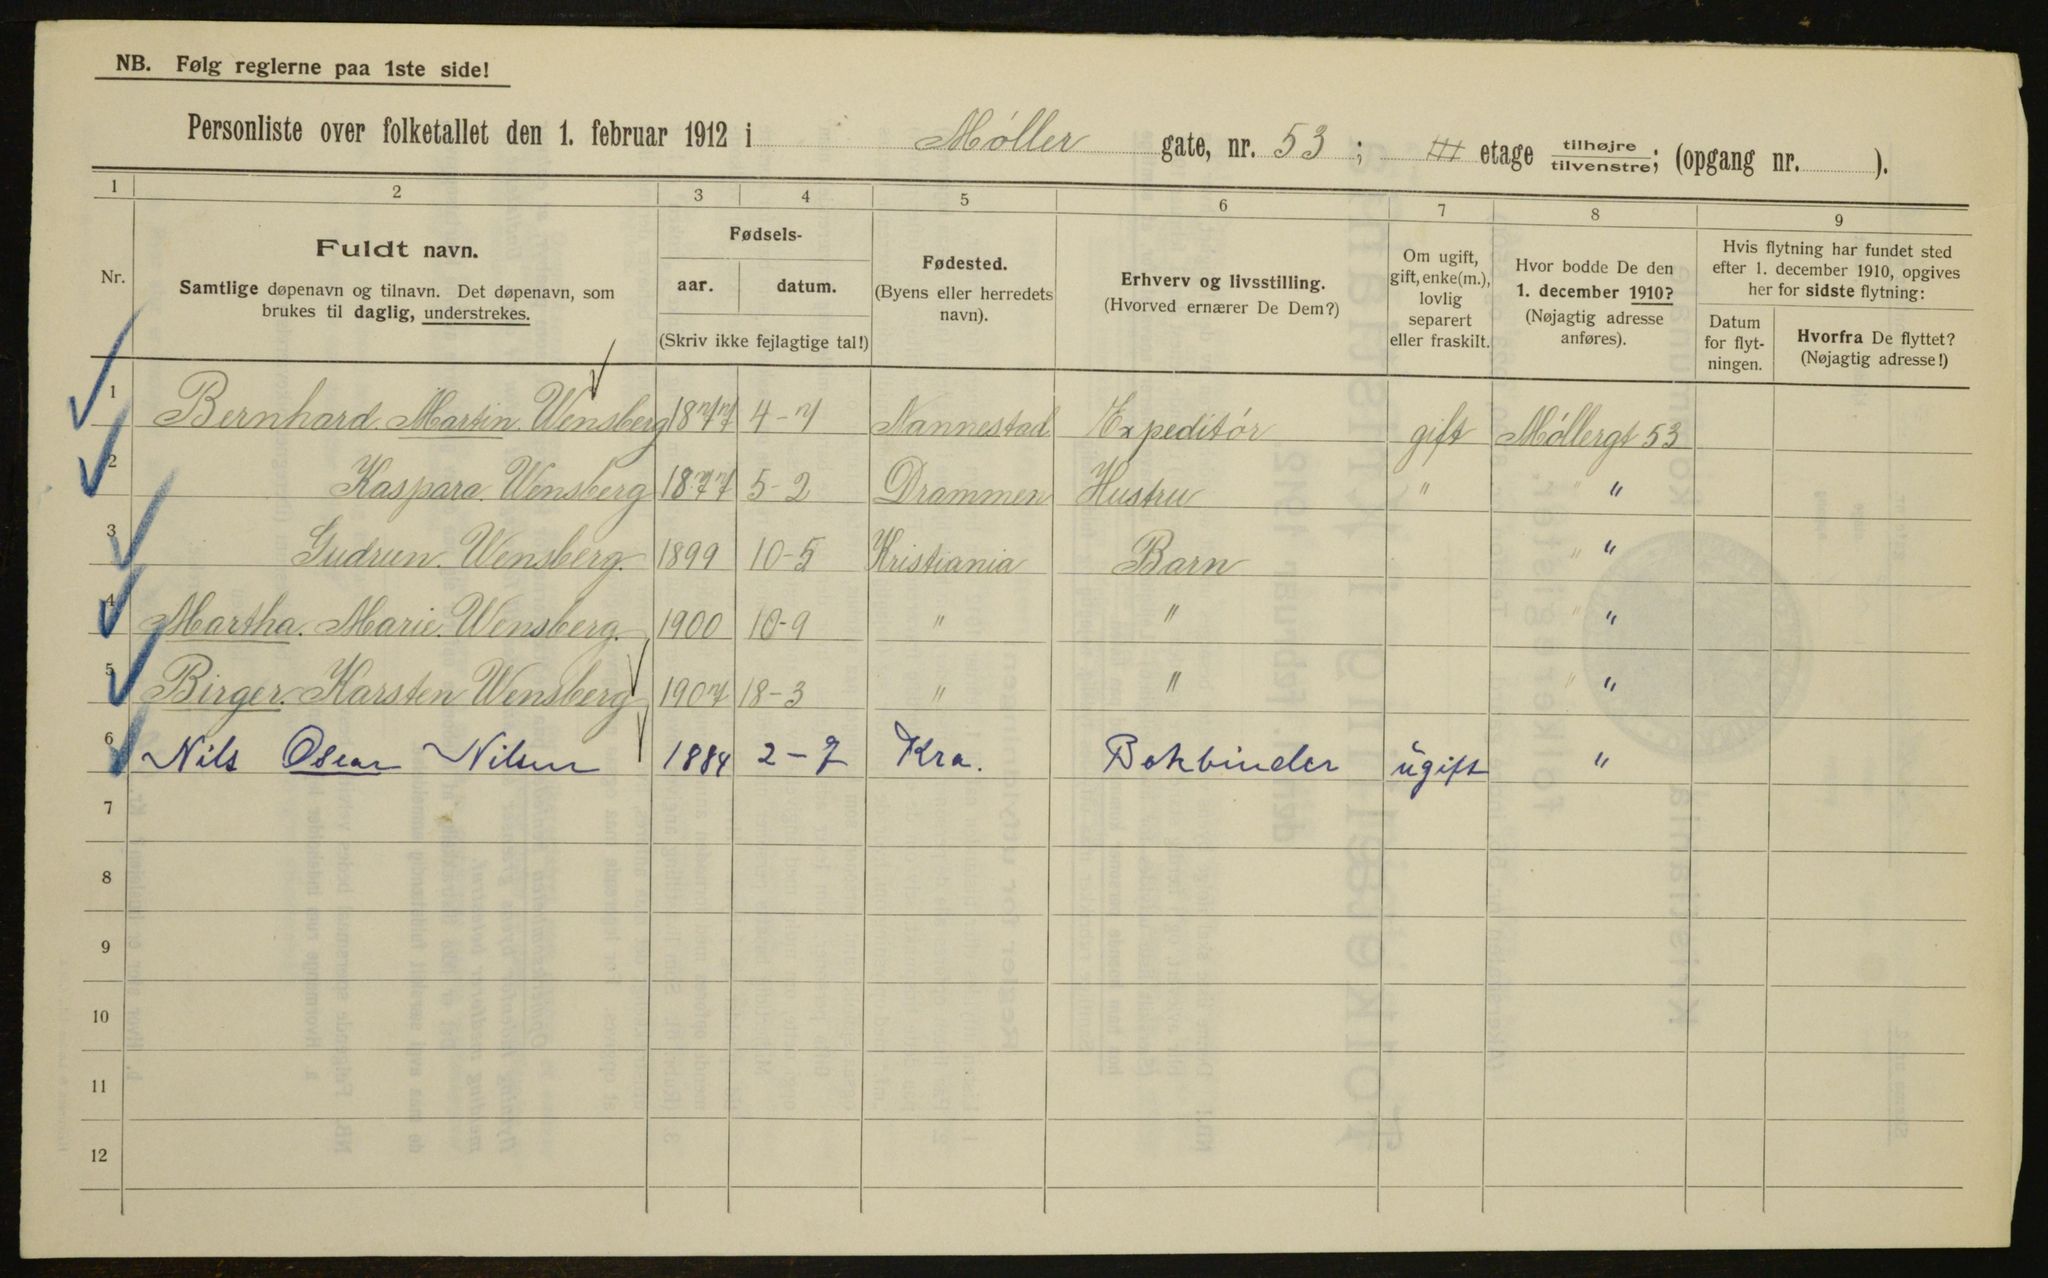 NB. Følg reglerne paa 1ste side!
Personliste over folketallet den 1. februar 1912 i Møller gate, nr. 53; III etage tilhøjre/tilvenstre; (opgang nr. ).
1 2 3 4 5 6 7 8 9
Nr.
Fuldt navn.
Samtlige døpenavn og tilnavn. Det døpenavn, som
brukes til daglig, understrekes.
Fødsels-
aar. datum.
(Skriv ikke fejlagtige tal!)
Fødested.
(Byens eller herredets
navn).
Erhverv og livsstilling.
(Hvorved ernærer De Dem?)
Om ugift,
gift, enke(m.),
lovlig
separert
eller fraskilt.
Hvor bodde De den
1. december 1910?
(Nøjagtig adresse
anføres).
Hvis flytning har fundet sted
efter 1. december 1910, opgives
her for sidste flytning:
Datum
for flyt-
ningen.
Hvorfra De flyttet?
(Nøjagtig adresse!)
1 Bernhard Martin Wensberg 1877 4-7 Nannestad Expeditór gift Móllergt 53
2 Kaspara Wensberg 1877 5-2 Drammen Hustru " "
3 Gudrun Wensberg 1899 10-5 Kristiania Barn "
4 Martha Marie Wensberg 1900 10-9 " " "
5 Birger Karsten Wensberg 1907 18-3 " " "
6 Nils Oscar Nilsen 1884 2-7 Kra. Bokbinder ugift "
7
8
9
10
11
12